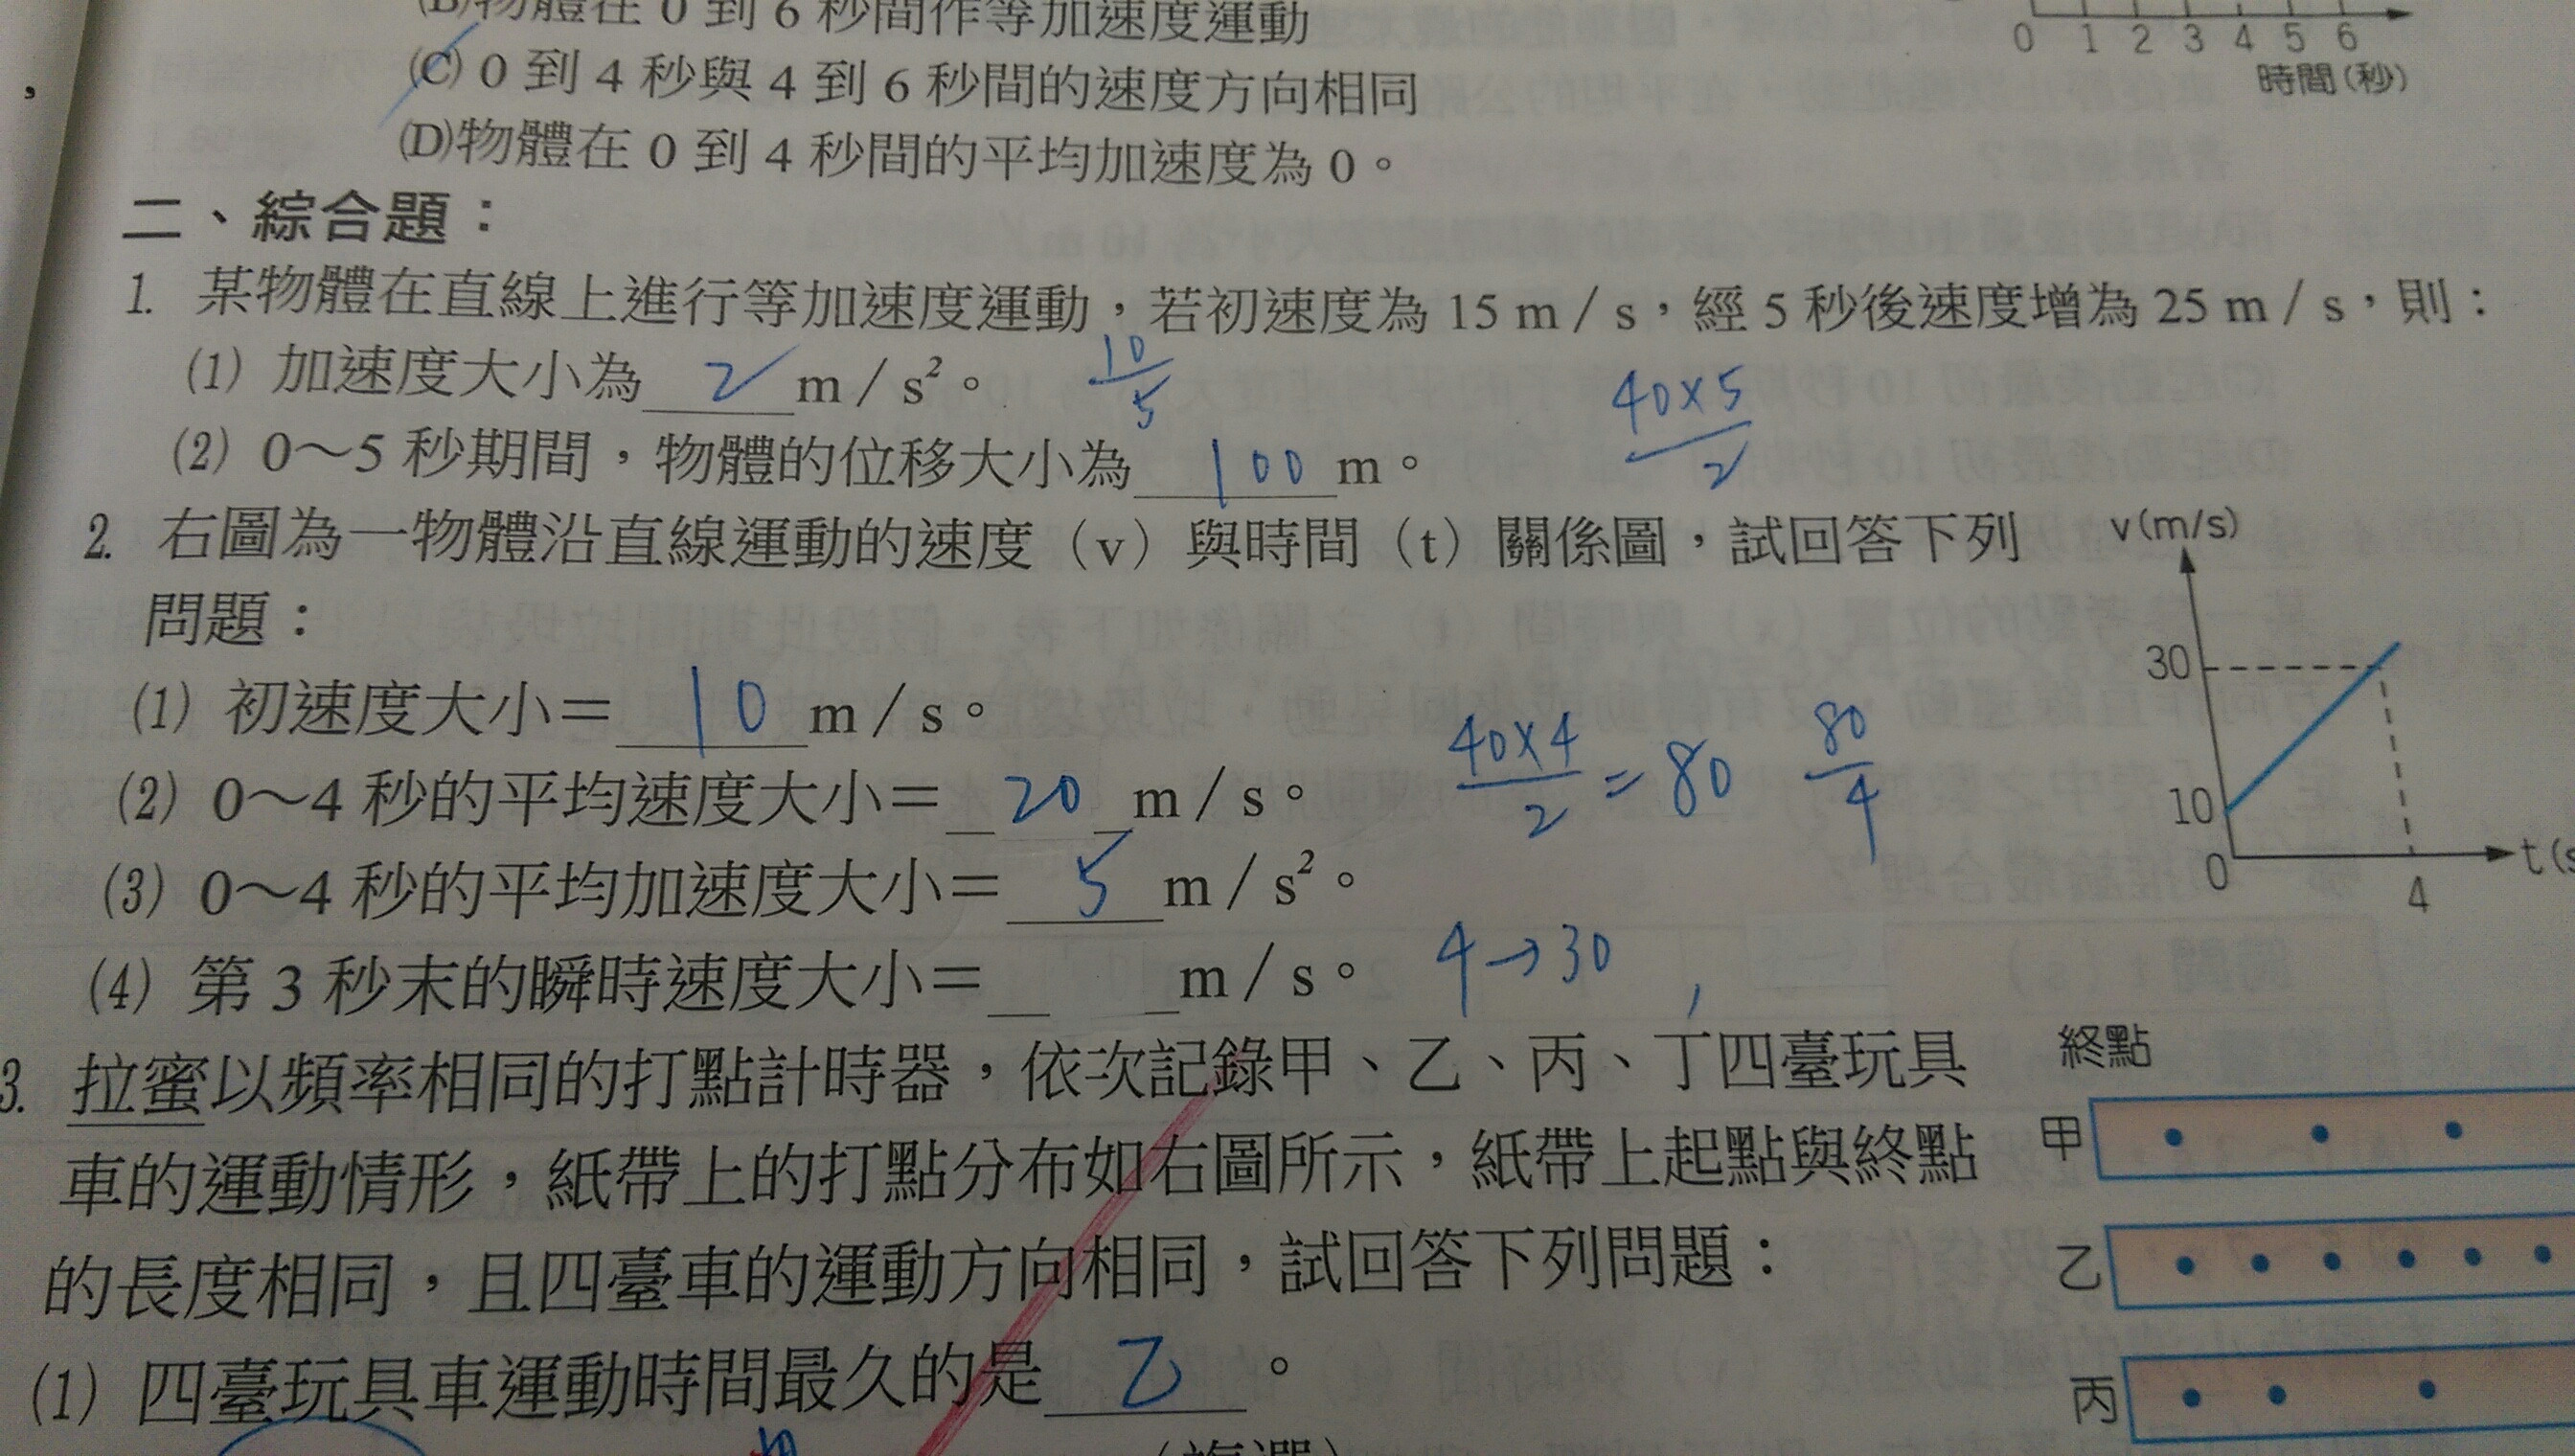 (B)物體在 0 到 6 秒間作等加速度運動
(C) 0 到 4 秒與 4 到 6 秒間的速度方向相同
(D)物體在 0 到 4 秒間的平均加速度為 0。
0 1 2 3 4 5 6
時間(秒)
二、綜合題：
1. 某物體在直線上進行等加速度運動，若初速度為 15 m / s，經 5 秒後速度增為 25 m / s，則：
(1) 加速度大小為 2 m / s²。 10/5
(2) 0～5 秒期間，物體的位移大小為 100 m。 40×5/2
2. 右圖為一物體沿直線運動的速度（v）與時間（t）關係圖，試回答下列
問題：
(1) 初速度大小＝ 10 m / s。
(2) 0～4 秒的平均速度大小＝ 20 m / s。 40×4/2 = 80 80/4
(3) 0～4 秒的平均加速度大小＝ 5 m / s²。
(4) 第 3 秒末的瞬時速度大小＝ m / s。 4→30 ,
v(m/s)
30
10
0
4
t(s
3. 拉蜜以頻率相同的打點計時器，依次記錄甲、乙、丙、丁四臺玩具
車的運動情形，紙帶上的打點分布如右圖所示，紙帶上起點與終點
的長度相同，且四臺車的運動方向相同，試回答下列問題：
(1) 四臺玩具車運動時間最久的是 乙 。
終點
甲
乙
丙